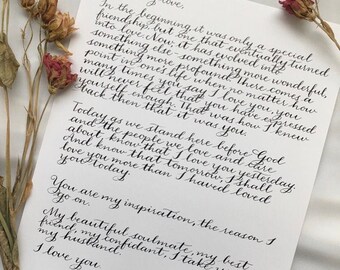 love,
In the beginning it was only a special
friendship, but one that eventually turned
into love. Now, it has evolved into
something else - something more wonderful,
something more profound. There comes a
point in one's life when no matter how
many times you say I love you, you
will never feel that you have expressed
yourself enough. That was how I knew
back then that it was you.
Today as we stand here before God
and the people we love and care
about, know that I love you yesterday.
And know that tomorrow, I shall
love you more than I haved loved
you today.
You are my inspiration, the reason I
go on.
My beautiful soulmate, my best
friend, my confidant, I take
my husband.
I love you